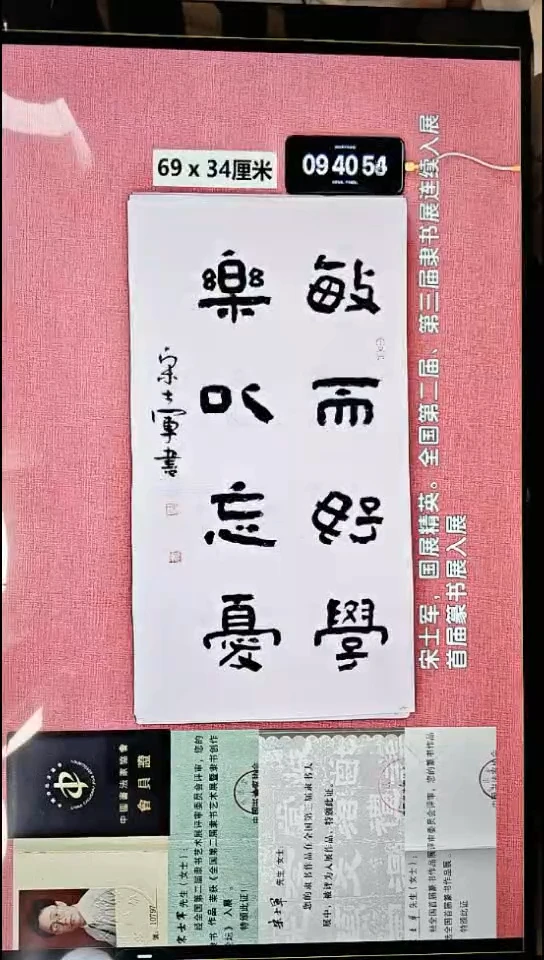 69 x 34厘米
09 40 54
敏而好學
樂以忘憂
宋士軍書
宋士军，国展精英。全国第二届、第三届隶书展连续入展
首届篆书展入展
中國書法家協會
會員證
宋士军 先生（女士）：
经全国第二届隶书艺术展评审委员会评审，您的
书 作品 荣获《全国第二届隶书艺术展暨隶书创作
坛》入展。
特颁此证！
宋士军 先生（女士）
您的隶书作品在全国第三届隶书大
展中，被评为入展作品，特颁此证。
士军 先生（女士）：
经全国首届篆书作品展评审委员会评审，您的篆书作品
选全国首届篆书作品展。
特颁此证